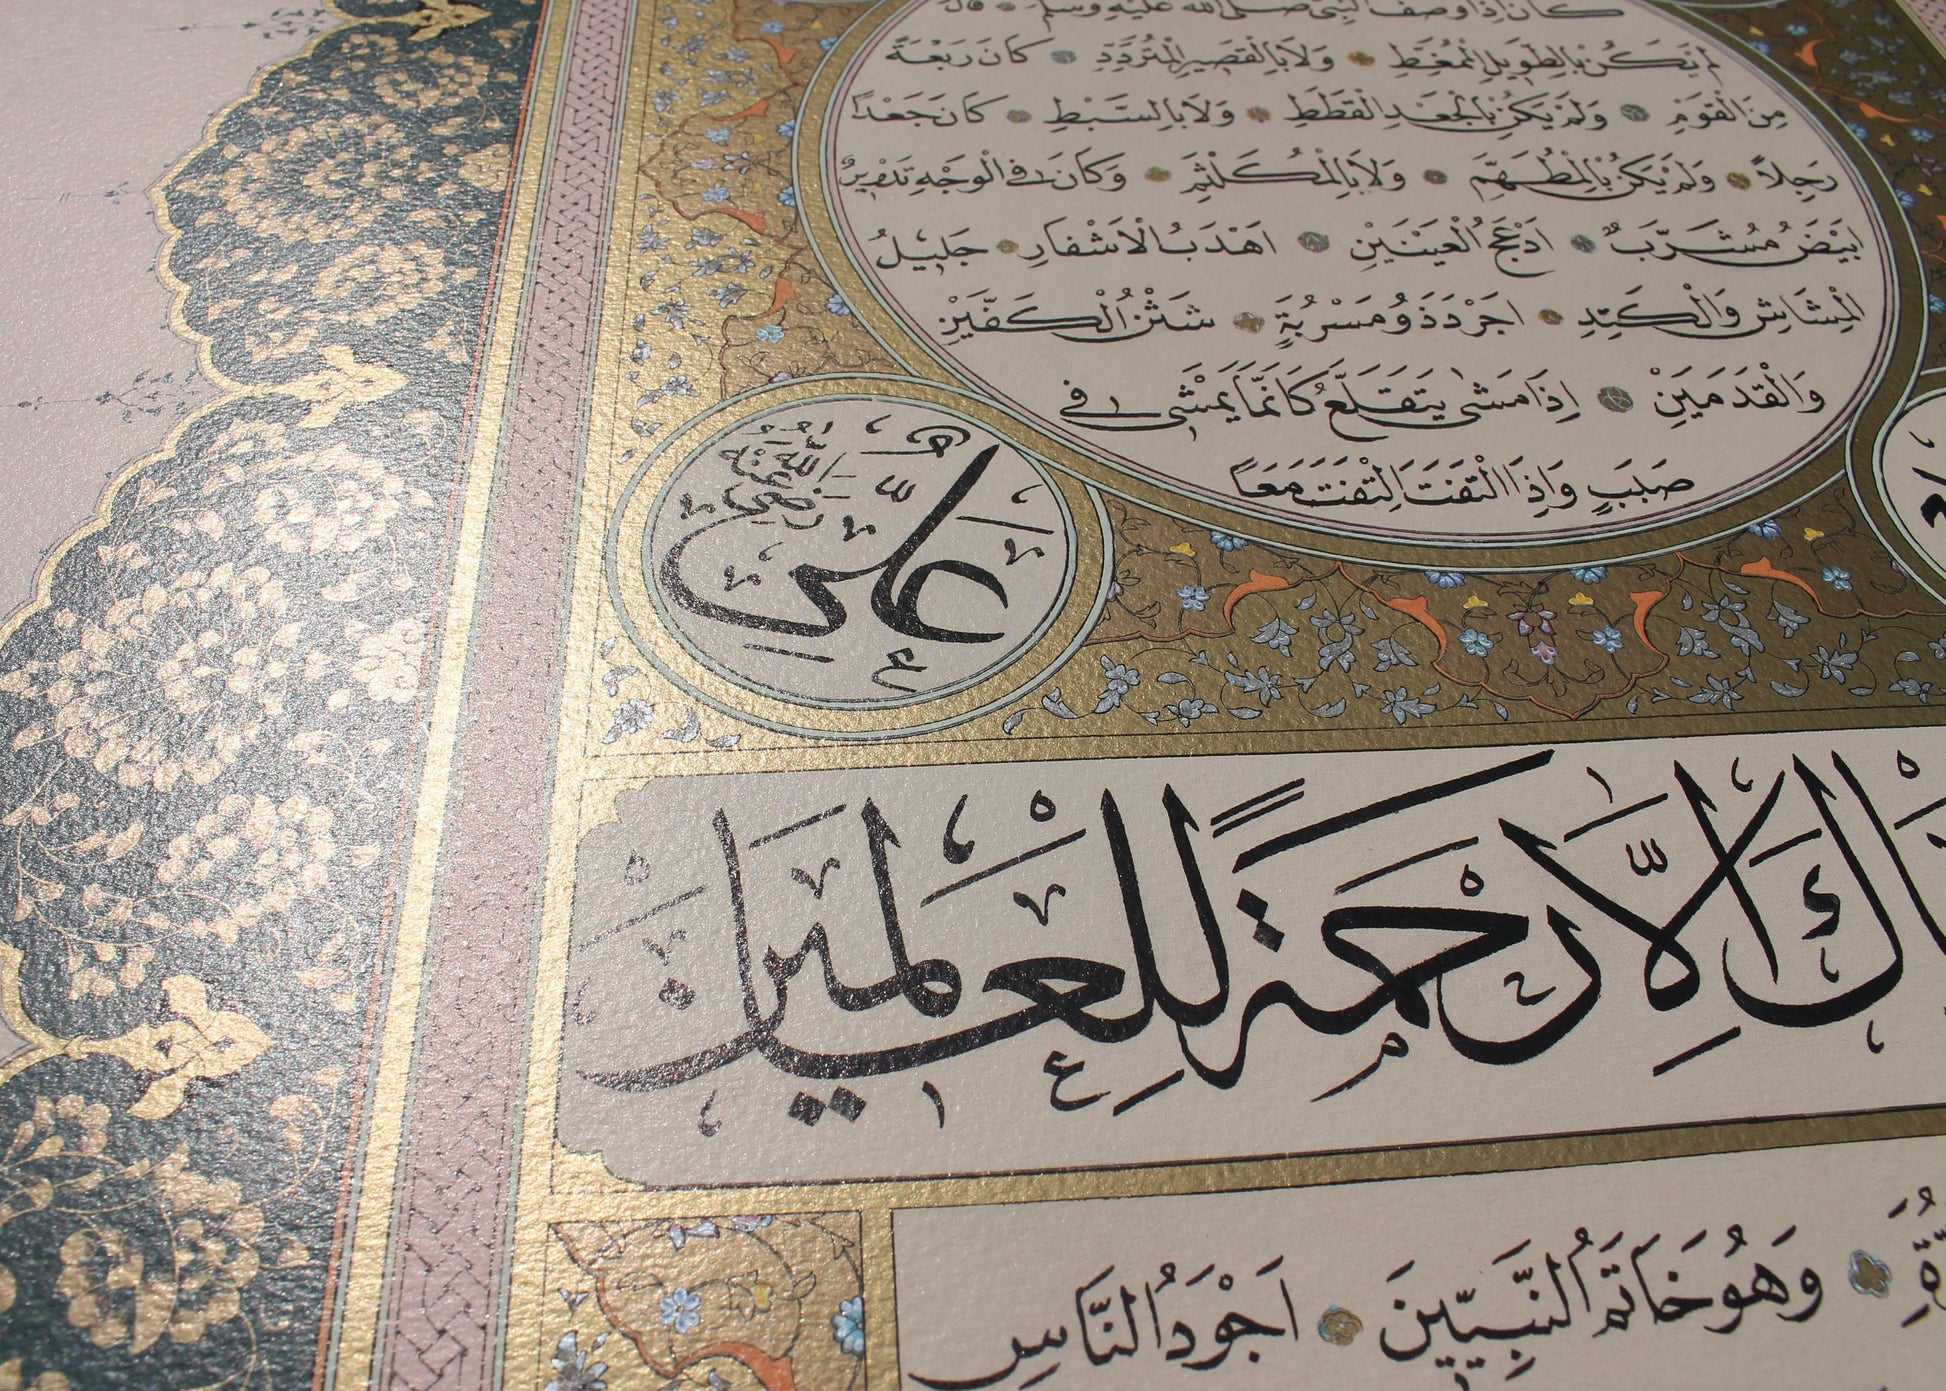 كان إذا وصف النبي صلى الله عليه وسلم قال
لم يكن بالطويل الممغط ولا بالقصير المتردد كان ربعة
من القوم ولم يكن بالجعد القطط ولا بالسبط كان جعدا
رجلا ولم يكن بالمطهم ولا بالمكلثم وكان في الوجه تدوير
ابيض مشرب ادعج العينين اهدب الاشفار جليل
المشاش والكتد اجرد ذو مسربة شثن الكفين
والقدمين اذا مشى يتقلع كأنما يمشي في
صبب واذا التفت التفت معا
علي رضي الله عنه
ناك الا رحمة للعلمين
وهو خاتم النبيين اجود الناس